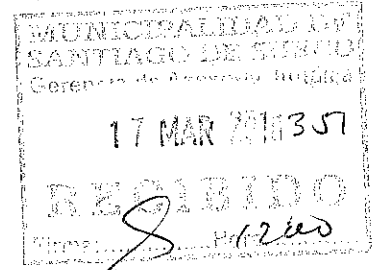 MUNICIPALIDAD DE
SANTIAGO DE SURCO
Gerencia de Asesoría Jurídica
17 MAR 351
RECIBIDO
Firma: Hora: